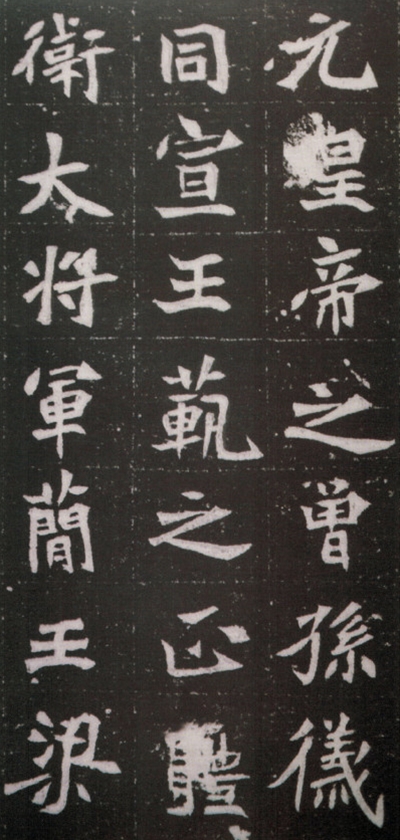 元皇帝之曾孫儀
同宣王範之正體
衛大將軍簡王梁